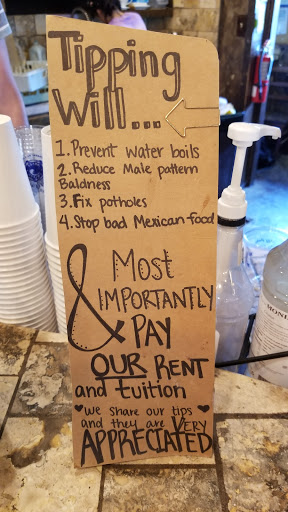 Tipping
Will...
1. Prevent water boils
2. Reduce Male pattern
Baldness
3. Fix potholes
4. Stop bad Mexican food
& MOST
IMPORTANTLY
PAY
OUR RENT
and tuition
♥ we share our tips ♥
and they are VERY
APPRECIATED